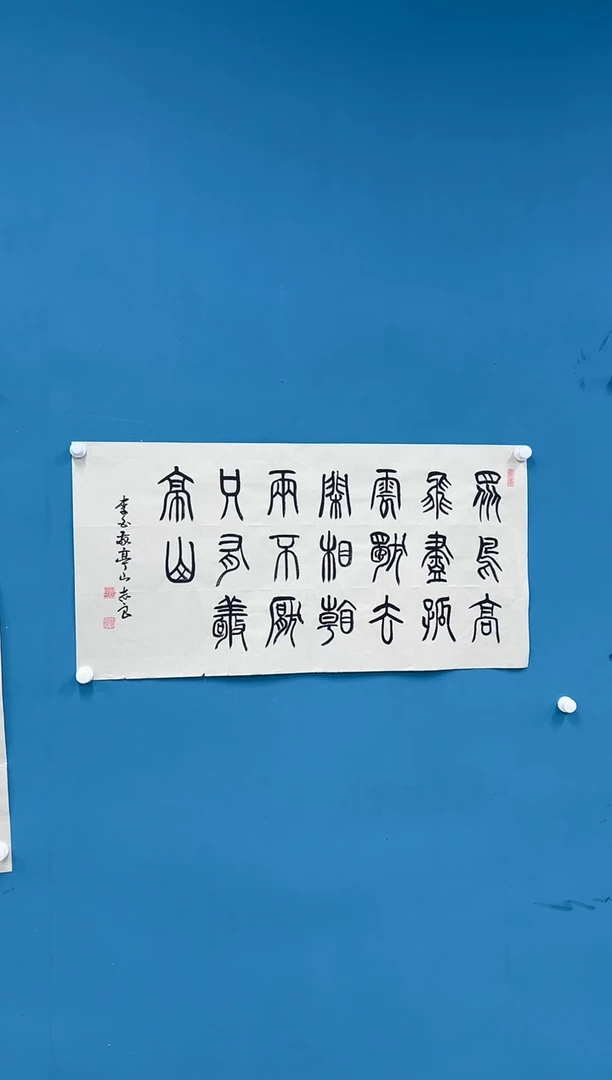 眾鳥高
飛盡孤
雲獨去
閒相看
兩不厭
只有敬
亭山
李白敬亭山